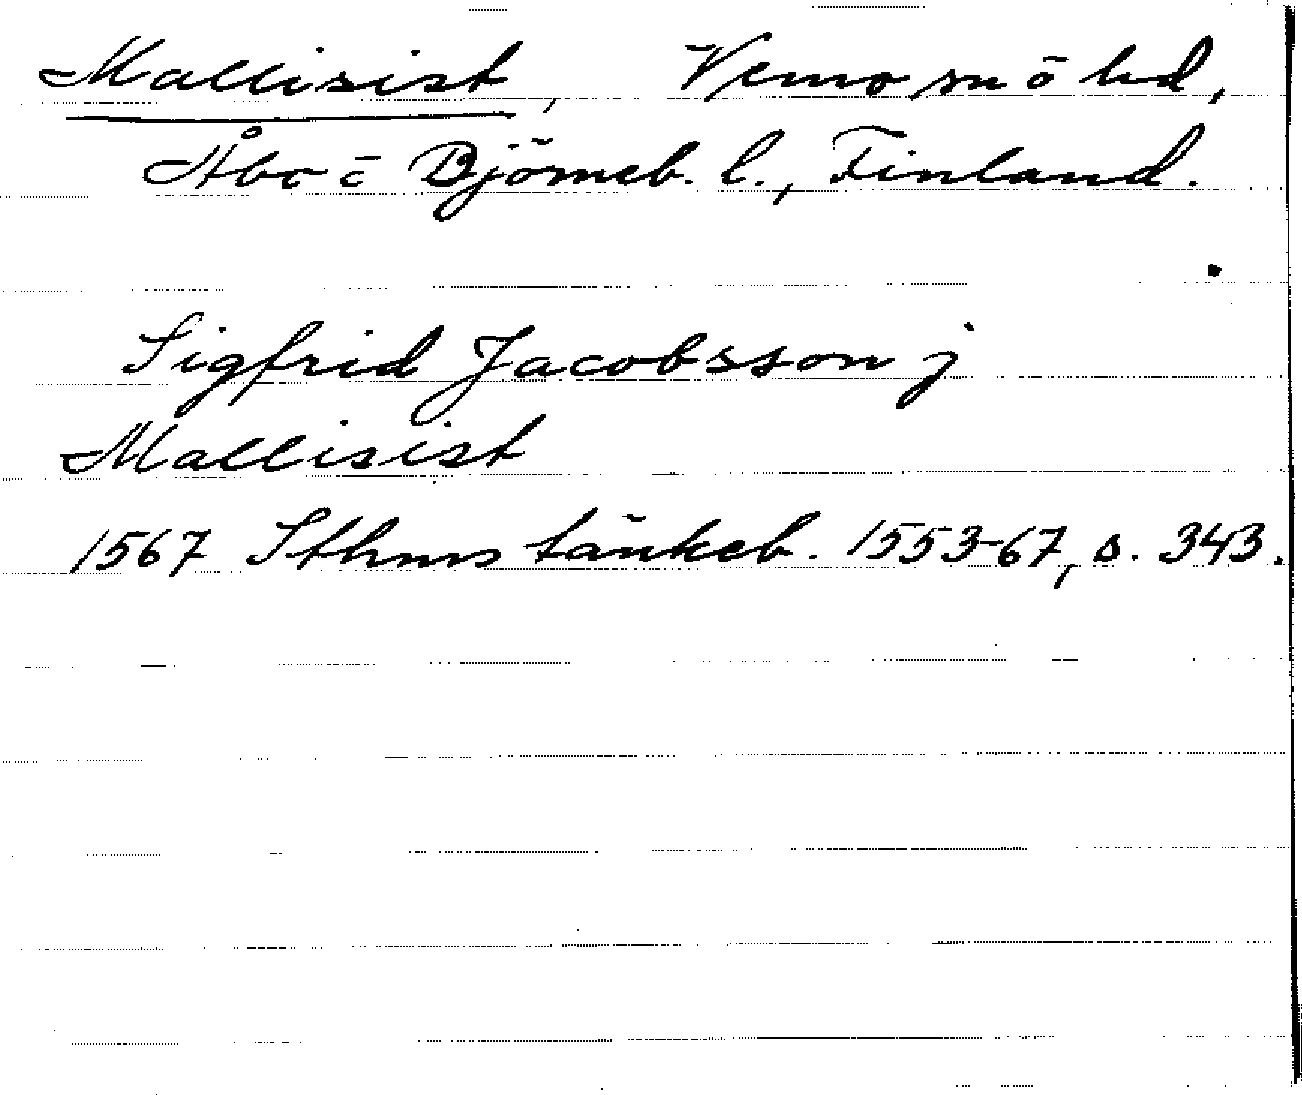 Mallisist, Vemo sn ö hd,
Åbo ö Björneb. l., Finland.
Sigfrid Jacobsson j
Mallisist
1567 Sthms tänkeb. 1553-67, s. 343.